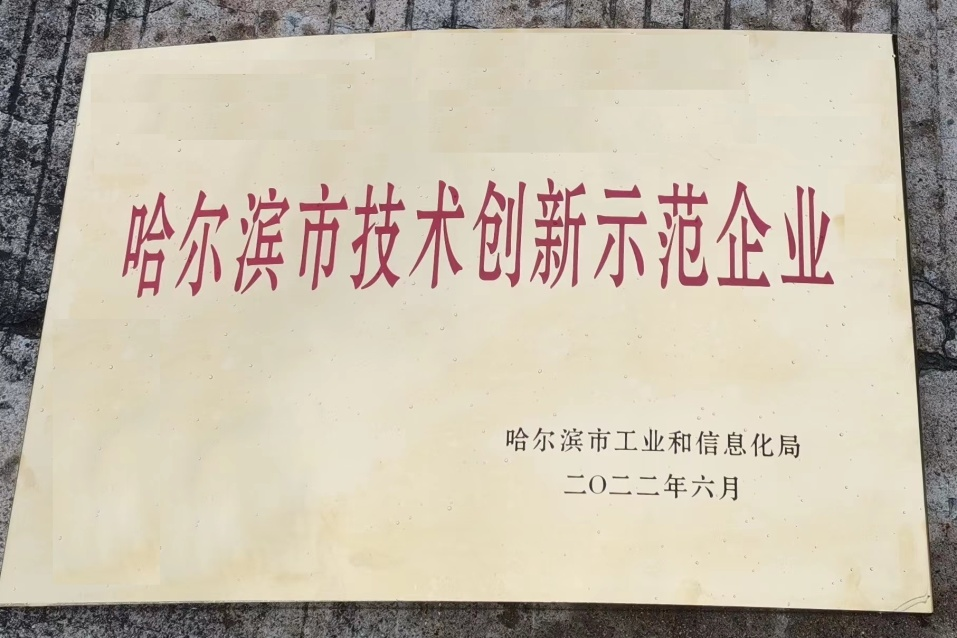 哈尔滨市技术创新示范企业
哈尔滨市工业和信息化局
二〇二二年六月